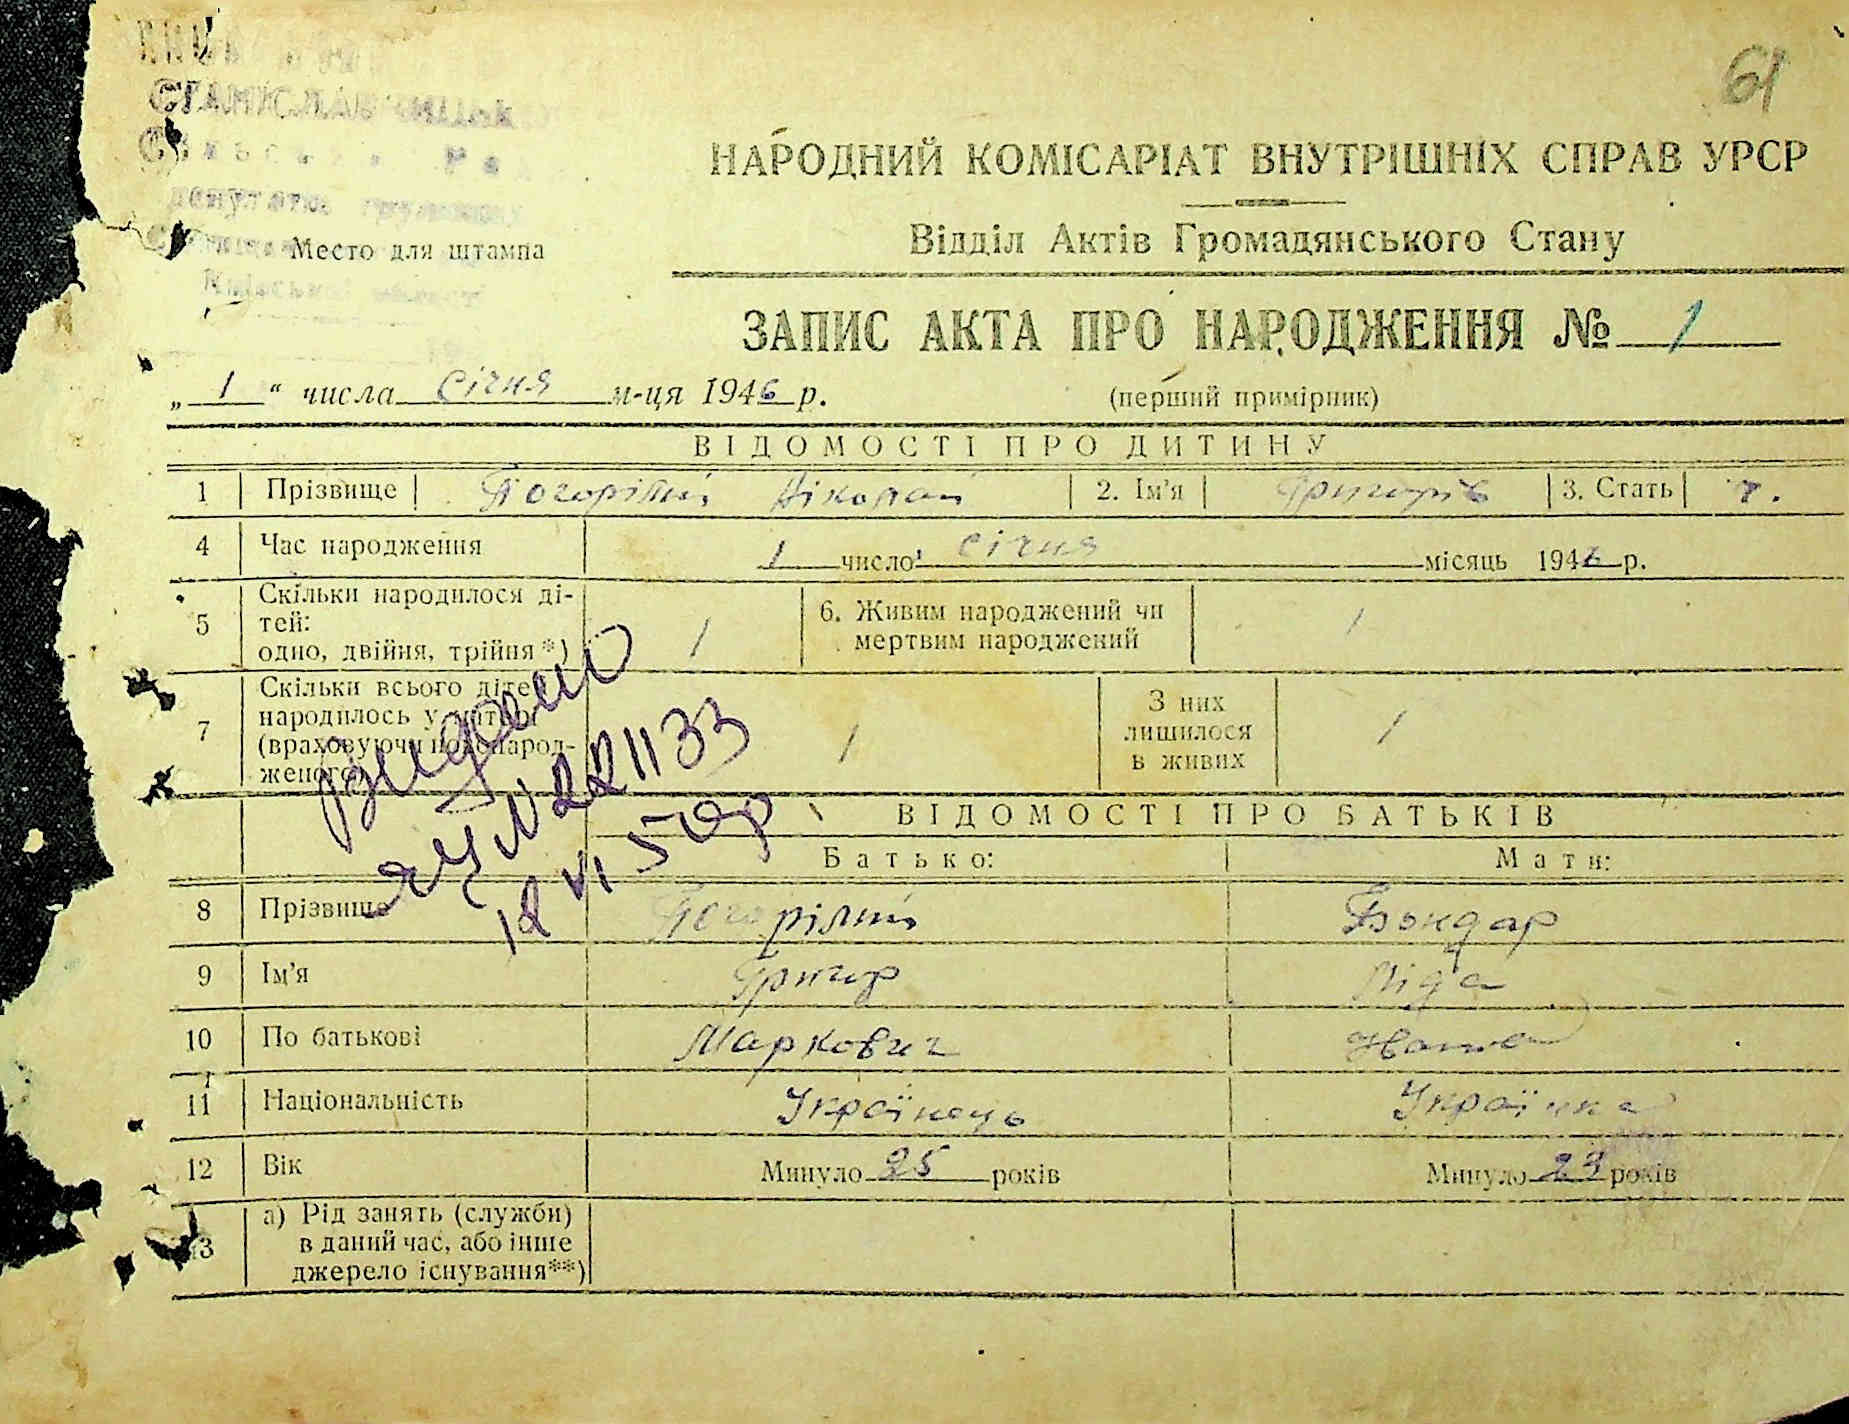 61
СТАНИСЛАВ
Место для штампа
НАРОДНИЙ КОМІСАРІАТ ВНУТРІШНІХ СПРАВ УРСР
Відділ Актів Громадянського Стану
ЗАПИС АКТА ПРО НАРОДЖЕННЯ № 1
„ 1 “ числа січня м-ця 1946 р.
(перший примірник)
ВІДОМОСТІ ПРО ДИТИНУ
1 Прізвище Погорілий Ніколай 2. Ім'я Григорів 3. Стать ч.
4 Час народження 1 число січня місяць 1946 р.
5 Скільки народилося ді-
тей:
одно, двійня, трійня *) 1 6. Живим народжений чи
мертвим народжений 1
7 Скільки всього дітей
народилось у матері
(враховуючи новонарод-
женого) 1 З них
лишилося
в живих 1
Видано
ЯЧ N 221133
12 VI 50 р
ВІДОМОСТІ ПРО БАТЬКІВ
Батько: Мати:
8 Прізвище Погорілий Бондар
9 Ім'я Григор Ліда
10 По батькові Маркович
11 Національність Українець Українка
12 Вік Минуло 25 років Минуло 24 років
13 а) Рід занять (служби)
в даний час, або інше
джерело існування**)